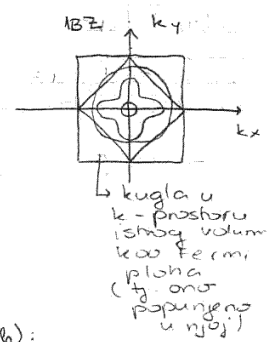 1BZ
ky
kx
kugla u
k-prostoru
istog volum
kao Fermi
ploha
(tj. ono
popunjeno
u njoj)
b):